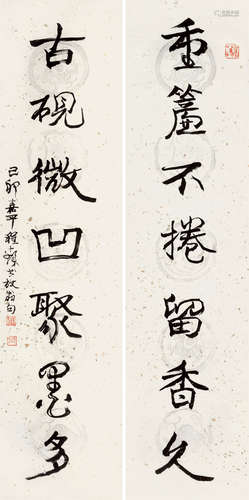 重簾不捲留香久
古硯微凹聚墨多
己卯嘉平程十髮书放翁句